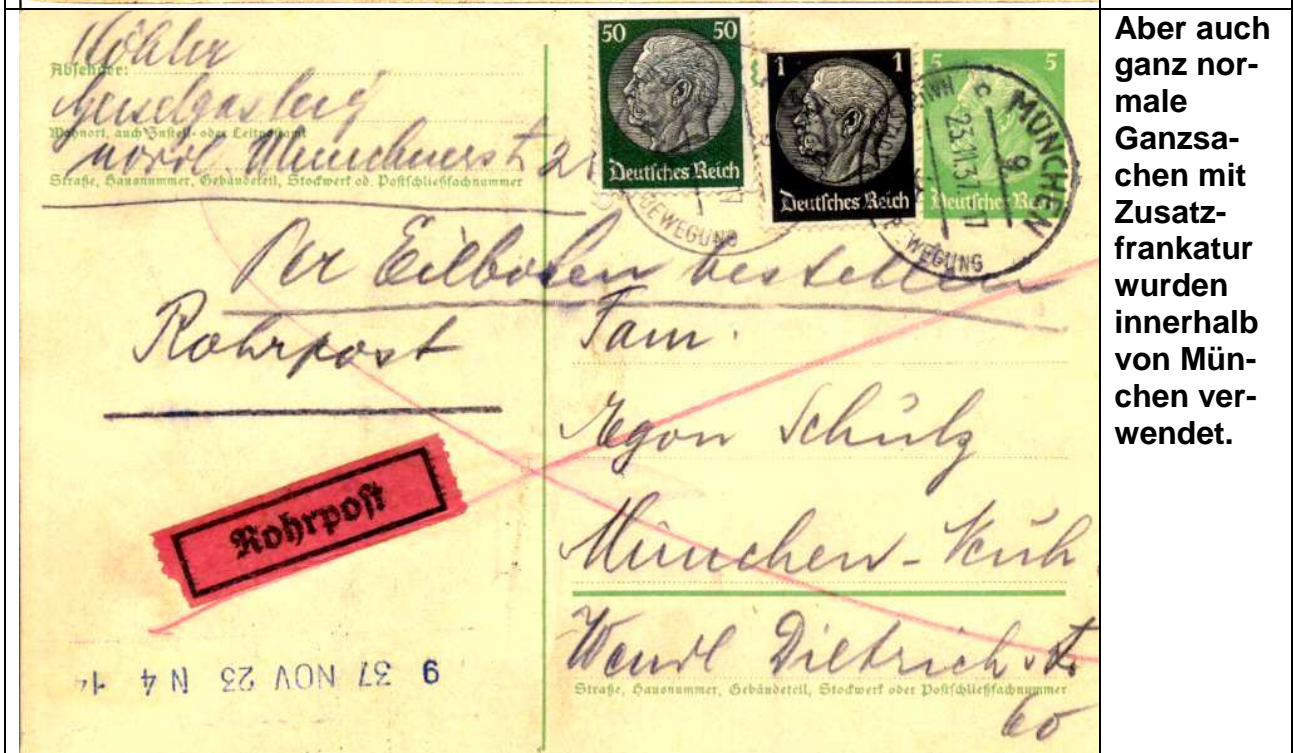 Absender:
Geiselgasteig
Wohnort, auch Zustell- oder Leitpostamt
nördl. Münchnerst
Straße, Hausnummer, Gebäudeteil, Stockwerk od. Postschließfachnummer
50 50
Deutsches Reich
1 1
Deutsches Reich
5 5
Deutsches Reich
MÜNCHEN
9
23.11.37.17
BEWEGUNG
BEWEGUNG
Per Eilboten bestellen
Rohrpost
Fam.
Egon Schülz
München-Neuh
Wendl Dietrich st.
Straße, Hausnummer, Gebäudeteil, Stockwerk oder Postschließfachnummer
60
Rohrpost
9 37 NOV 23 N4 14
Aber auch
ganz nor-
male
Ganzsa-
chen mit
Zusatz-
frankatur
wurden
innerhalb
von Mün-
chen ver-
wendet.